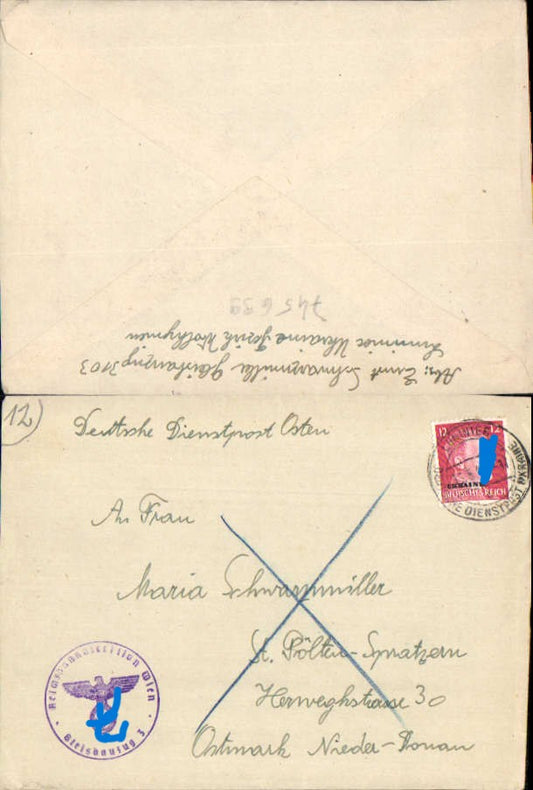 745639
Abs: Ernst Schwarzmüller Gleisbauzug 3103
Ukraine Bezirk Wolhynien
12)
Deutsche Dienstpost Osten
12 12
UKRAINE
DEUTSCHES REICH
DIENSTPOST UKRAINE
An Frau
Maria Schwarzmüller
St. Pölten-Spratzern
Herweghstrasse 30
Ostmark Nieder-Donau
Reichsbahndirektion Wien
Gleisbauzug 3